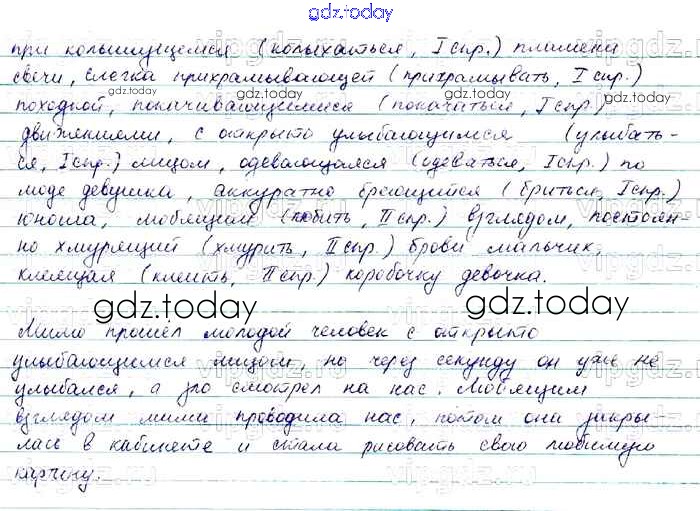 gdz.today
при колышущемся (колыхаться, I спр.) пламени
свечи, слегка прихрамывающей (прихрамывать, I спр.)
походкой, покачивающимися (покачаться, I спр.)
движениями, с открыто улыбающимся (улыбать-
ся, I спр.) лицом, одевающаяся (одеваться, I спр.) по
моде девушка, аккуратно бреющийся (бриться, I спр.)
юноша, любящим (любить, II спр.) взглядом, постоян-
но хмурящий (хмурить, II спр.) брови мальчик,
клеящая (клеить, II спр.) коробочку девочка.
gdz.today gdz.today
Мимо прошёл молодой человек с открыто
улыбающимся лицом, но через секунду он уже не
улыбался, а зло смотрел на нас. Любящим
взглядом мими проводила нас, потом она закры-
лась в кабинете и стала рисовать свою любимую
картину.
gdz.today